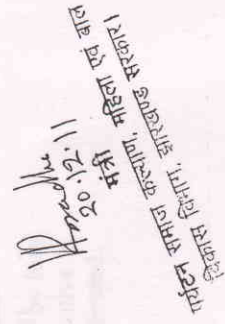 20.12.11
मंत्री
पर्यटन समाज कल्याण, महिला एवं बाल
विकास विभाग, झारखण्ड सरकार।